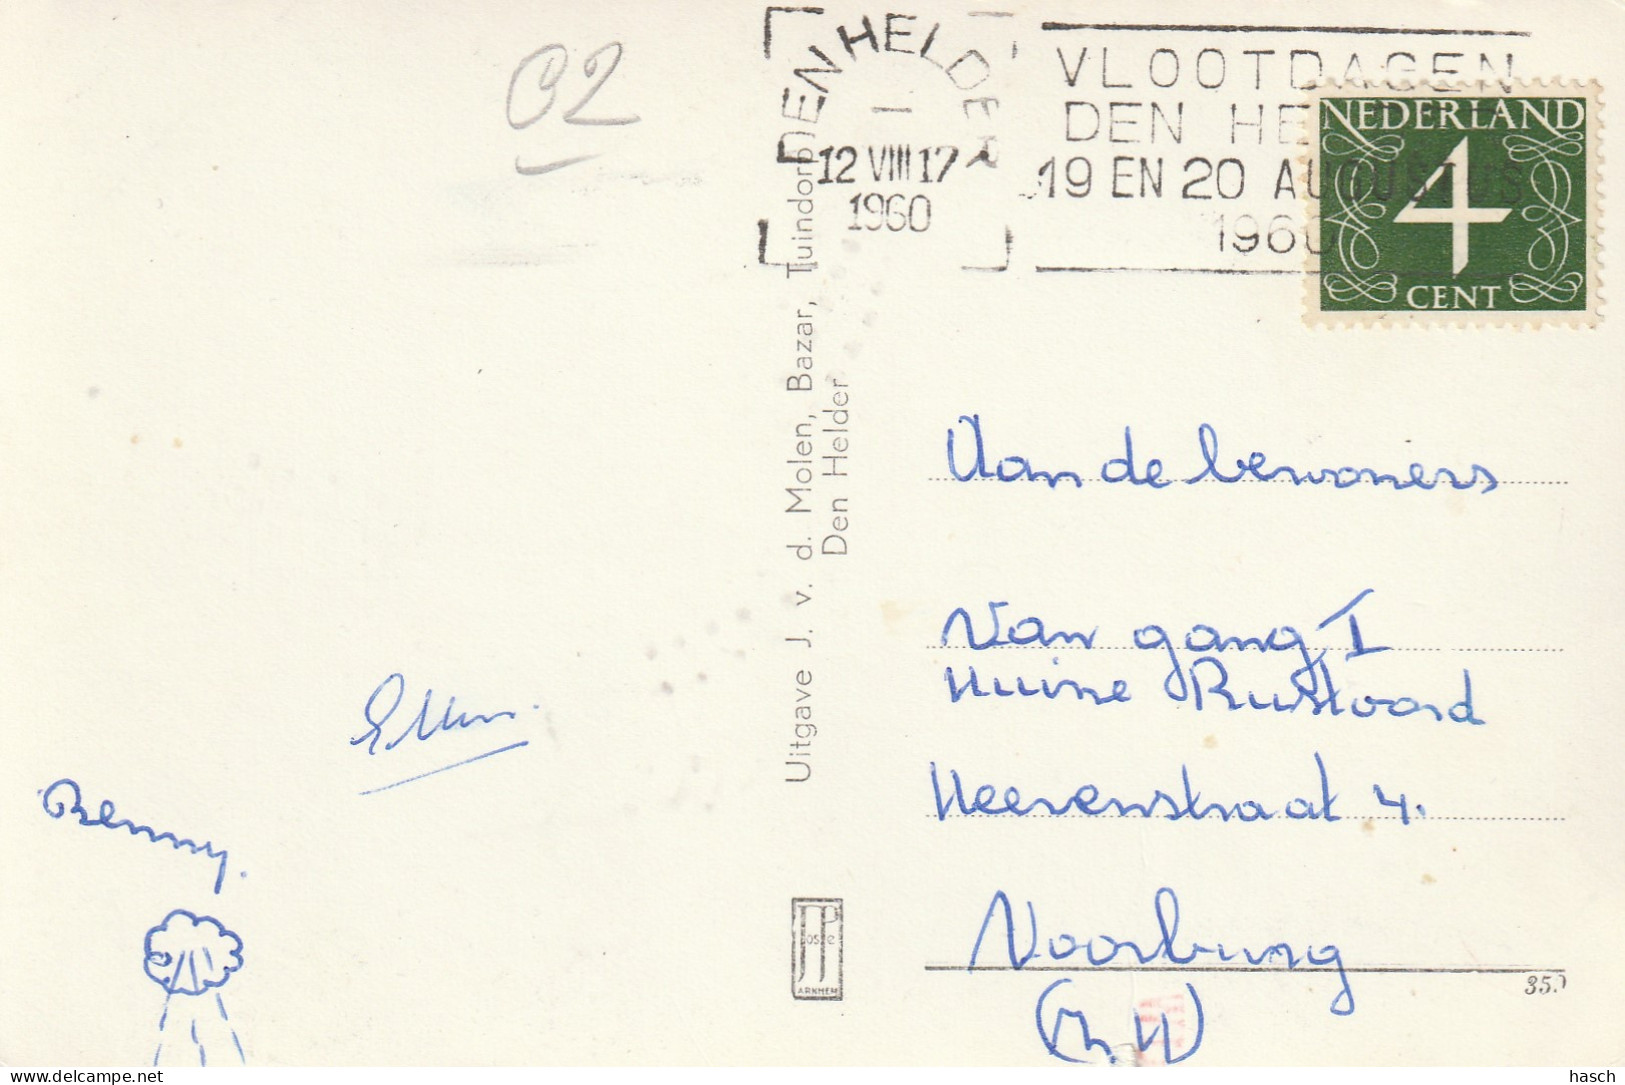 82
DEN HELDER
12 VIII 17
1960
VLOOTDAGEN
DEN HE
19 EN 20 AUGUSTUS
1960
NEDERLAND
4
CENT
Uitgave J. v. d. Molen, Bazar, Tuindorp
Den Helder
Aan de bewoners
Van gang I
Huine Rustoord
Heerenstraat 4.
Voorburg
(Z.H)
Ellen.
Benny.
JP
ARNHEM
hasch
www.delcampe.net